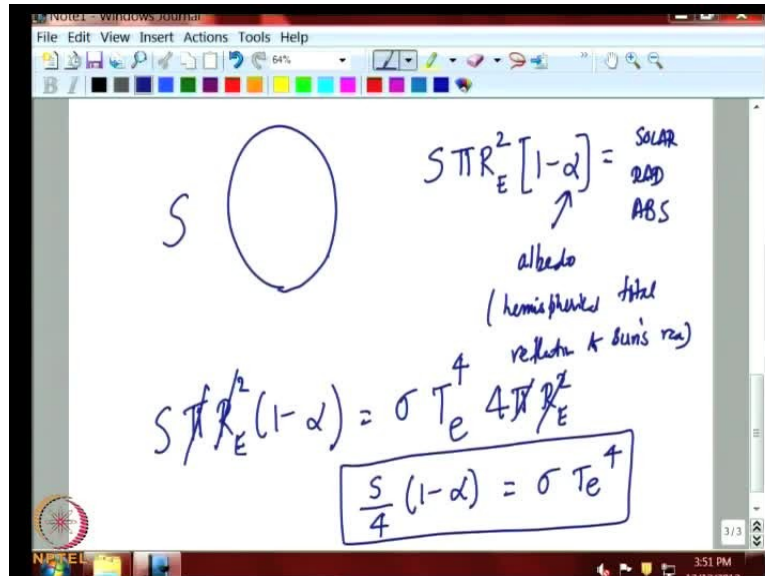 Note1 - Windows Journal
File Edit View Insert Actions Tools Help
64%
B I
S
SπR_E^2 [1-α] = SOLAR
RAD
ABS
albedo
(hemispherical total
reflectn to Sun's
SπR_E^2 (1-α) = σ T_e^4 4πR_E^2
S/4 (1-α) = σ Te^4
3/3
NPTEL
3:51 PM